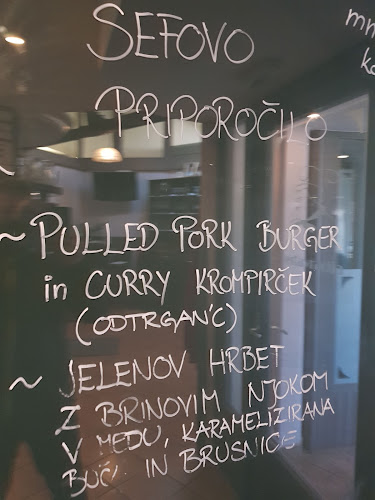 SEFOVO
PRIPOROČILO
~ PULLED PORK BURGER
in CURRY KROMPIRČEK
(ODTRGAN'C)
~ JELENOV HRBET
Z BRINOVIM NJOKOM
V MEDU, KARAMELIZIRANA
BUČ' IN BRUSNICE